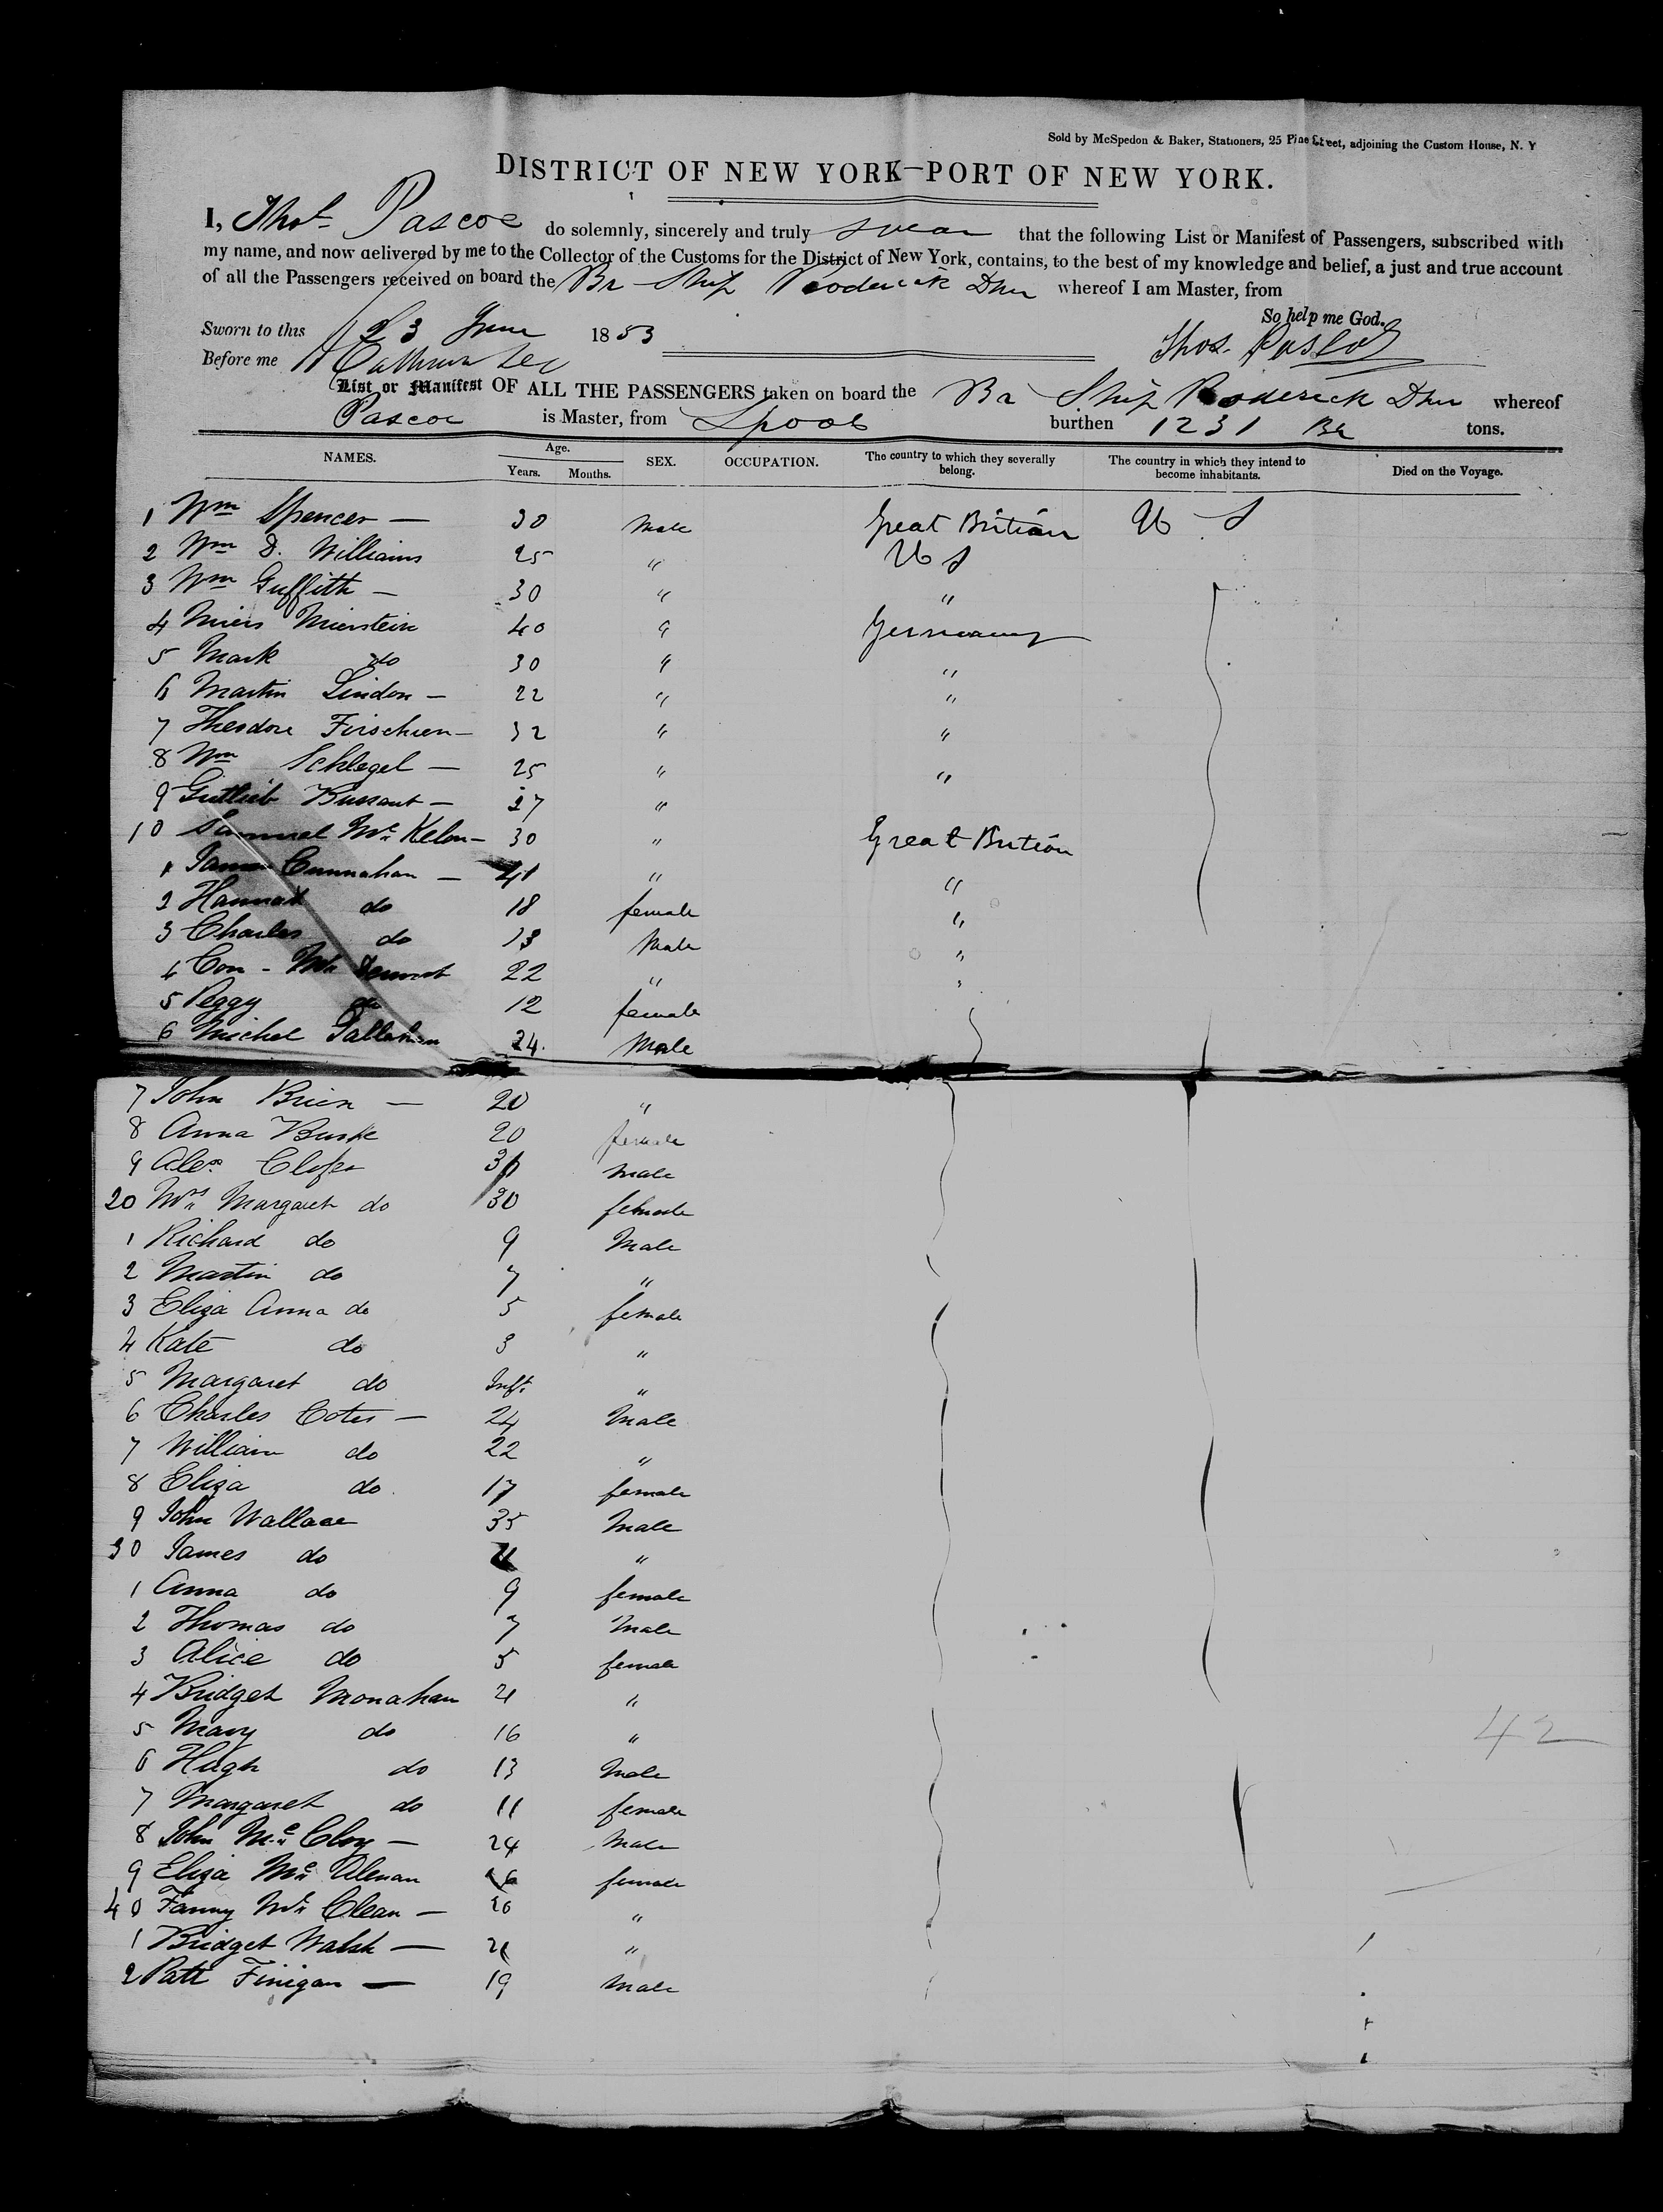 Sold by McSpedon & Baker, Stationers, 25 Pine Street, adjoining the Custom House, N. Y
DISTRICT OF NEW YORK—PORT OF NEW YORK.
I, Thos Pascoe do solemnly, sincerely and truly swear that the following List or Manifest of Passengers, subscribed with
my name, and now delivered by me to the Collector of the Customs for the District of New York, contains, to the best of my knowledge and belief, a just and true account
of all the Passengers received on board the Br Ship Roderick Dhu whereof I am Master, from
So help me God.
Sworn to this 23 June 1853
Thos. Pascoe
Before me
List or Manifest OF ALL THE PASSENGERS taken on board the Br Ship Roderick Dhu whereof
Pascoe is Master, from Lpool burthen 1231 tons.
NAMES. Age. Years. Months. SEX. OCCUPATION. The country to which they severally belong. The country in which they intend to become inhabitants. Died on the Voyage.
1 Wm Spencer — 30 Male Great Britian U S
2 Wm D. Williams 25 " U S
3 Wm Griffith — 30 " "
4 Miers Mierstein 40 " Germany
5 Mark do 30 " "
6 Martin Lindon — 22 " "
7 Theodore — 32 " "
8 Wm Schlegel — 25 " "
9 Gutlieb — 27 "
10 Samuel Mc — 30 " Great Britian
1 James Cunnahan — 41 " "
2 Hannah do 18 female "
3 Charles do 13 Male "
4 Con - Mc 22 " "
5 Peggy do 12 female
6 Michel Gallahan 24. Male
7 John Brien — 20 "
8 Anna Burke 20 female
9 Alex male
20 Mrs Margaret do 30 female
1 Richard do 9 Male
2 Martin do 7 "
3 Eliza Anna do 5 female
4 Kate do 3 "
5 Margaret do Inft. "
6 Charles Cotes — 24 Male
7 William do 22 "
8 Eliza do 17 female
9 John Wallace 35 Male
30 James do "
1 Anna do 9 female
2 Thomas do 7 Male
3 Alice do 5 female
4 Bridget Monahan 21 "
5 Mary do 16 "
6 Hugh do 13 Male
7 Margaret do 11 female
8 John Mc Cloy — 24 Male
9 Eliza Mc female
40 Fanny Mc Clean — 20 "
1 Bridget Walsh — 21 "
2 Patt Finigan — 19 Male
42